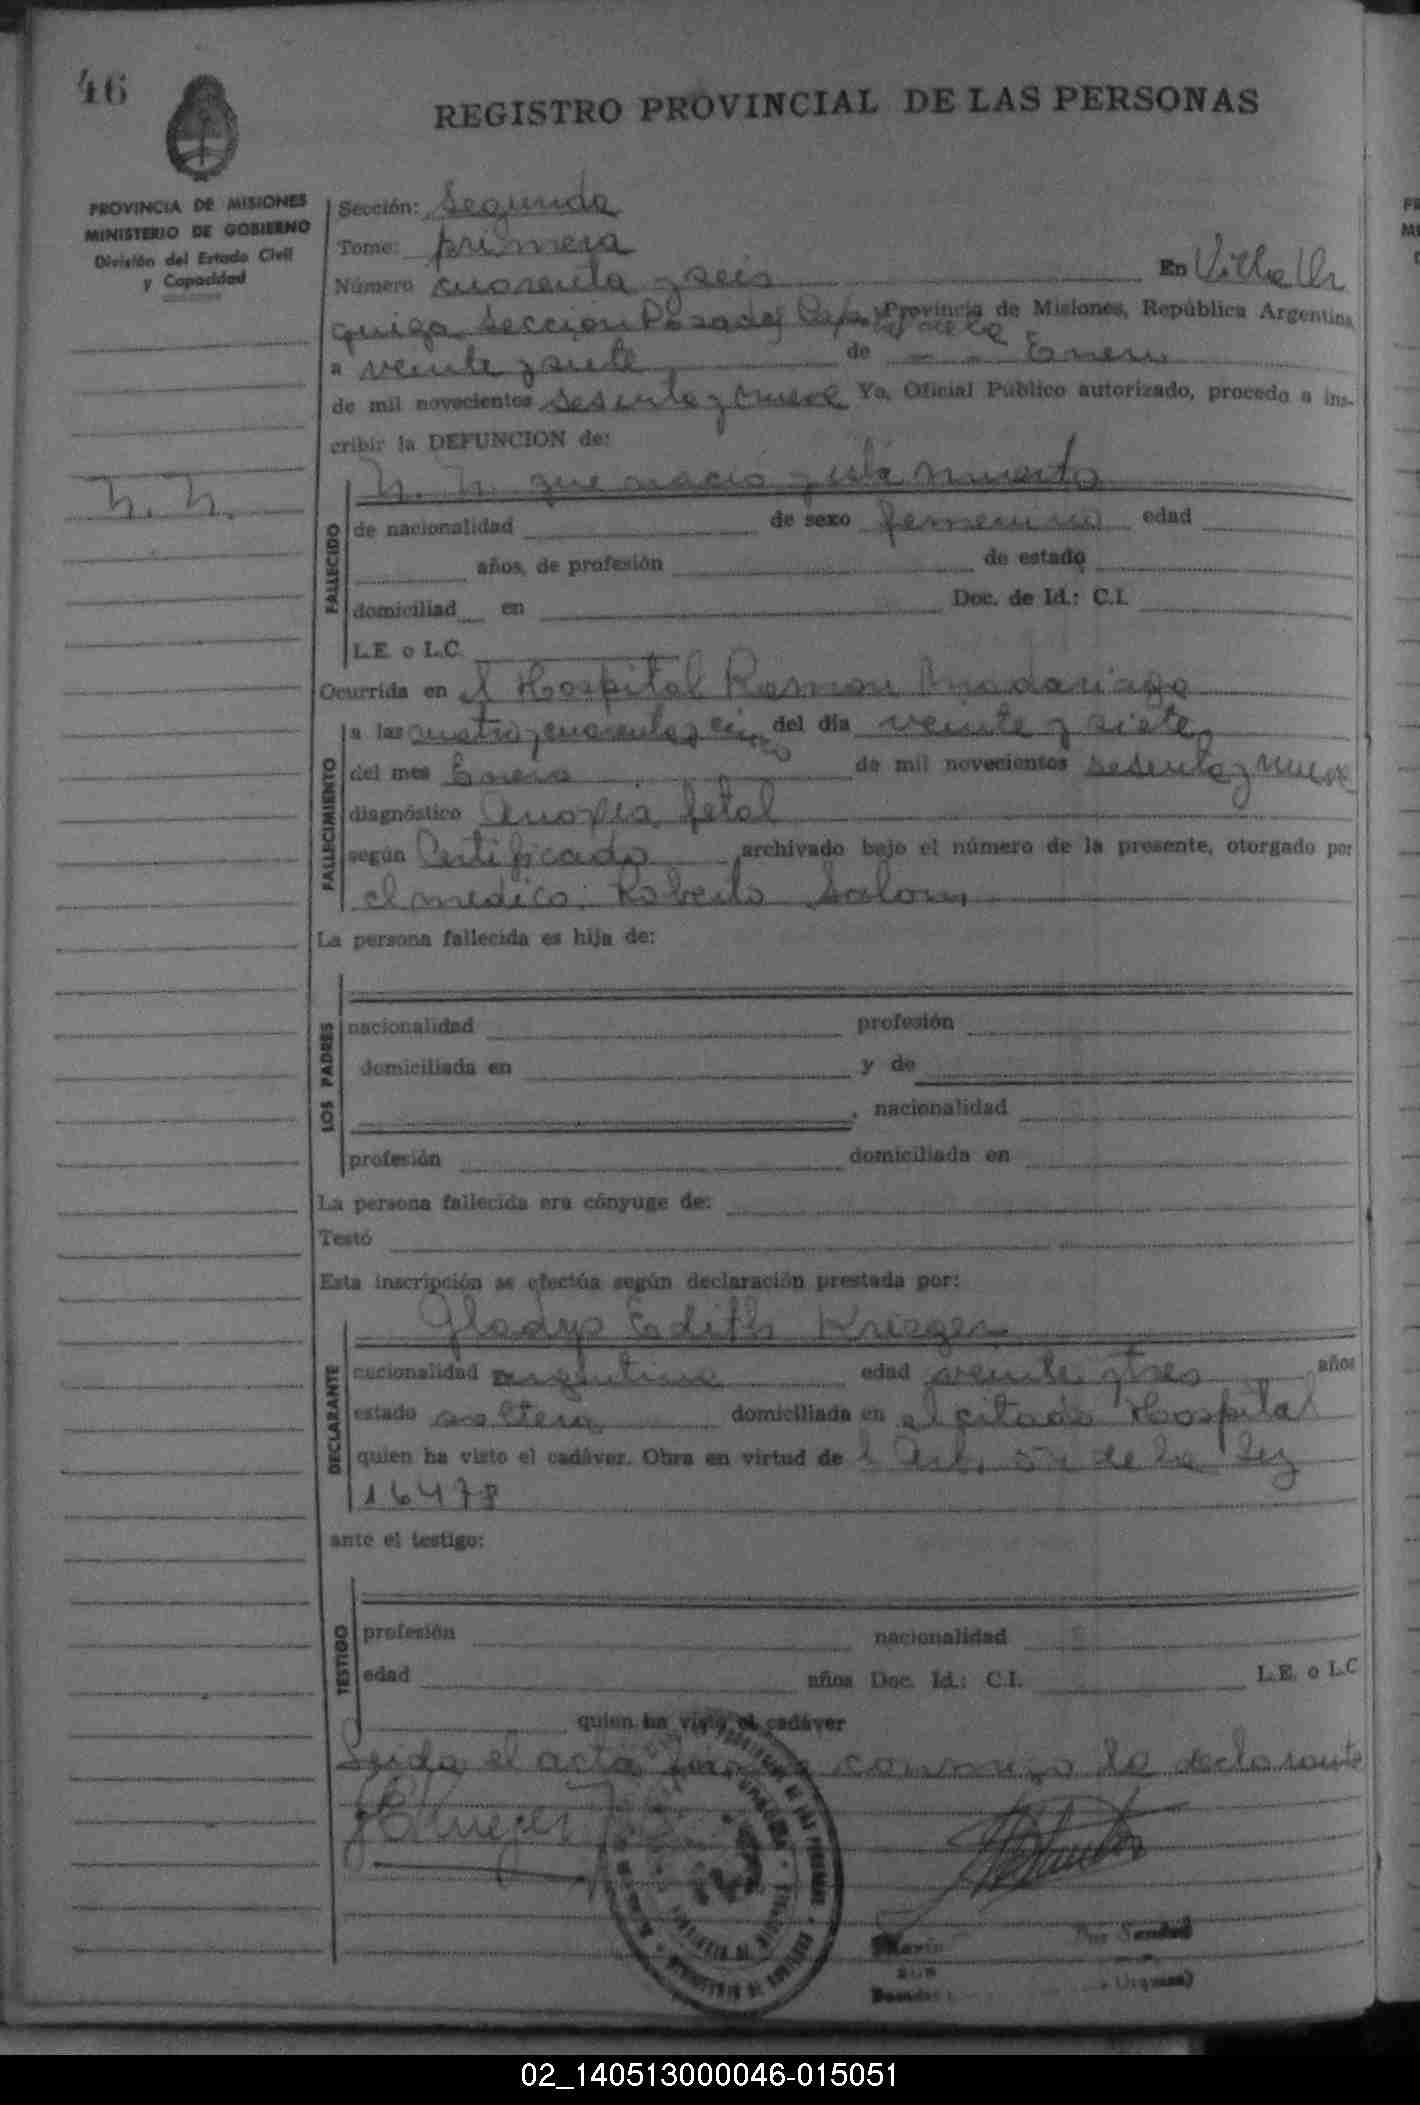 46
REGISTRO PROVINCIAL DE LAS PERSONAS
PROVINCIA DE MISIONES
MINISTERIO DE GOBIERNO
División del Estado Civil
y Capacidad
Sección: Segunda
Tomo: primera
Número cuarenta y seis En Villa Ur
quiza Seccion Posadas Provincia de Misiones, República Argentina
a veinte y siete de - - Enero
de mil novecientos sesenta y nueve Yo, Oficial Público autorizado, procedo a ins-
cribir la DEFUNCION de:
N. N.
N. N. que nacio y esta muerto
FALLECIDO
de nacionalidad de sexo femenino edad
años, de profesión de estado
domiciliad en Doc. de Id.: C.I.
L.E. o L.C.
Ocurrida en el Hospital Ramon Madariaga
FALLECIMIENTO
a las cuatro y cuarenta y cinco del día veinte y siete
del mes Enero de mil novecientos sesenta y nueve
diagnóstico Anoxia fetal
según Certificado archivado bajo el número de la presente, otorgado por
el medico: Roberto Salom
La persona fallecida es hija de:
LOS PADRES
nacionalidad profesión
domiciliada en y de
, nacionalidad
profesión domiciliada en
La persona fallecida era cónyuge de:
Testó
Esta inscripción se efectúa según declaración prestada por:
Gladys Edith Krieger
DECLARANTE
nacionalidad argentina edad veinte y tres años
estado soltera domiciliada en el citado Hospital
quien ha visto el cadáver. Obra en virtud de l Art. de la Ley
16478
ante el testigo:
TESTIGO
profesión nacionalidad
edad años Doc. Id.: C.I. L.E. o L.C
quien ha visto el cadáver
Leida el acta firma conmigo la declarante
02_140513000046-015051